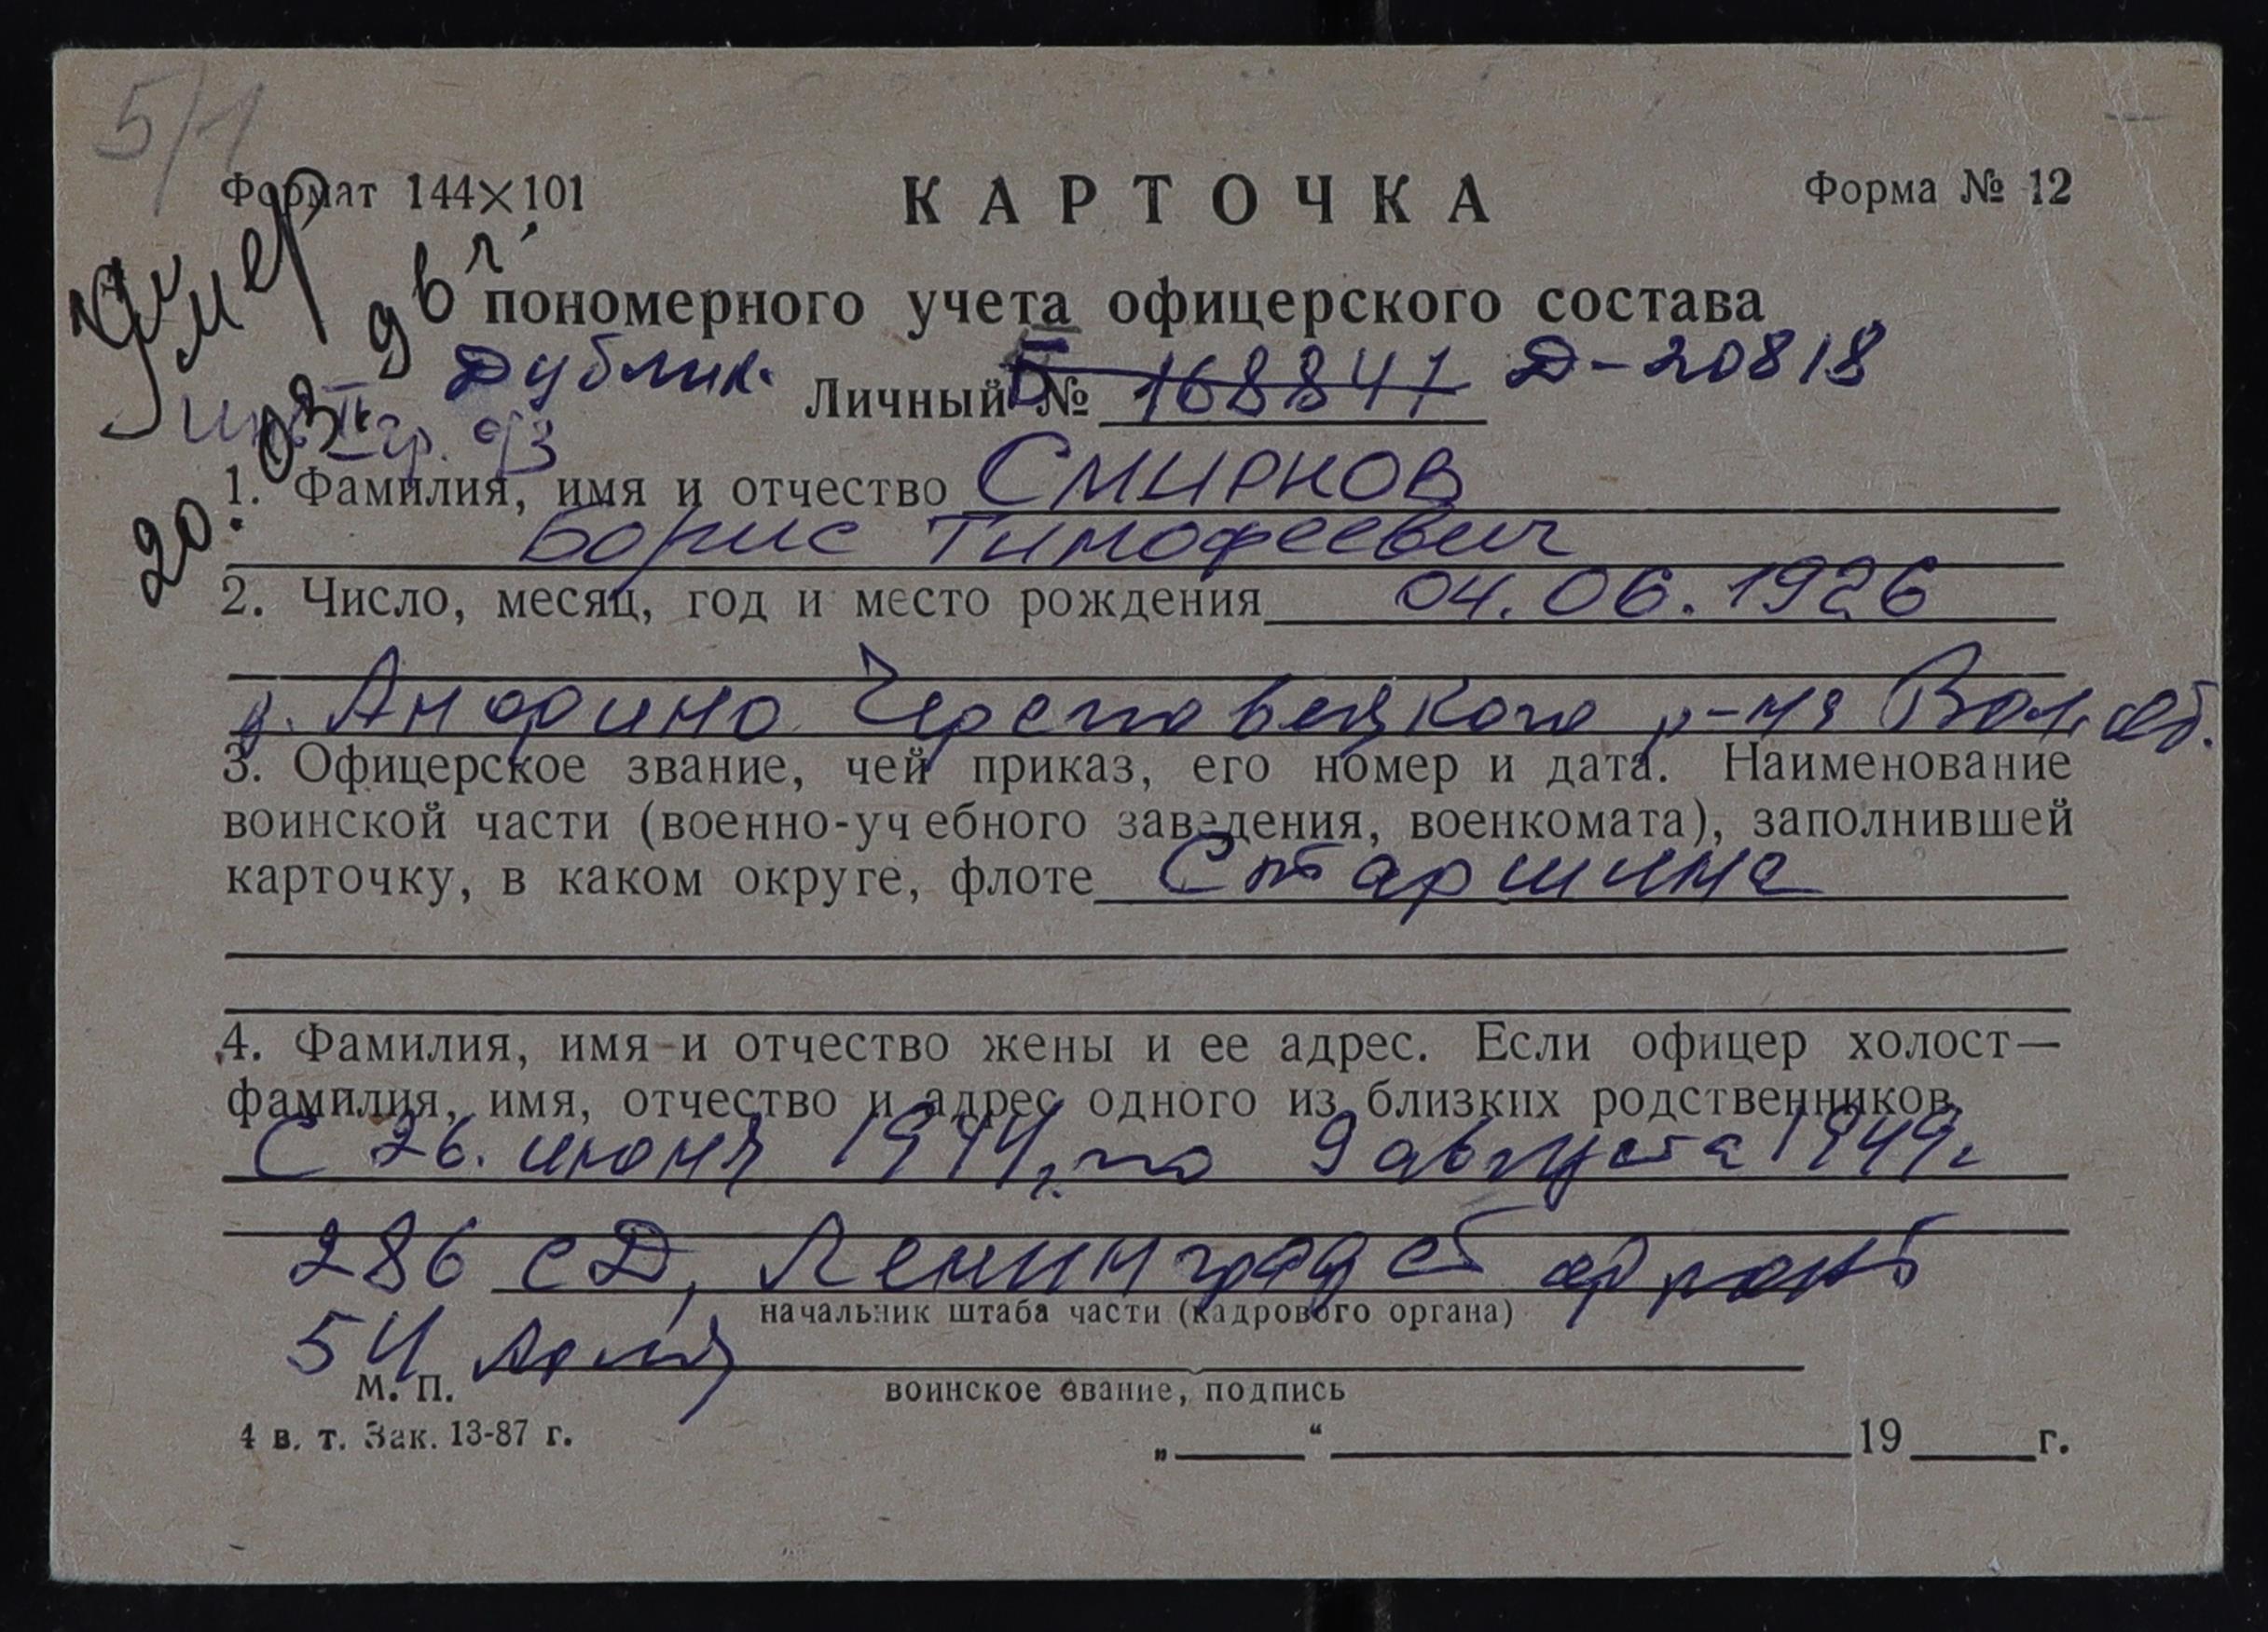 5/1
Формат 144×101
КАРТОЧКА
Форма № 12
Умер
20.03.96 г.
пономерного учета офицерского состава
Дублик.
Личный № Б 168847 Д-20818
инв. II гр.
1. Фамилия, имя и отчество Смирнов
Борис Тимофеевич
2. Число, месяц, год и место рождения 04.06.1926
д. Анфрино Череповецкого р-на Вол. об.
3. Офицерское звание, чей приказ, его номер и дата. Наименование
воинской части (военно-учебного заведения, военкомата), заполнившей
карточку, в каком округе, флоте Старшина
4. Фамилия, имя и отчество жены и ее адрес. Если офицер холост—
фамилия, имя, отчество и адрес одного из близких родственников
С 26. июня 1944г. по 9 августа 1949г.
286 СД, Ленинград фронт
начальник штаба части (кадрового органа)
54 Армия
М. П.
воинское звание, подпись
4 в. т. Зак. 13-87 г.
„ “ 19 г.